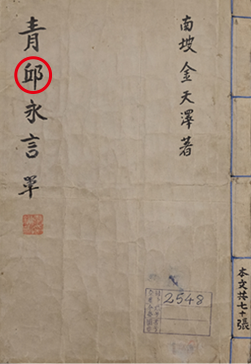 南坡 金天澤著
青邱永言 單
2548
本文共七十張